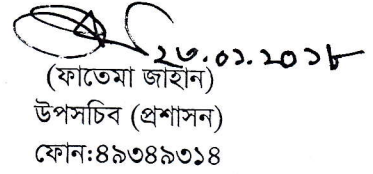 ২৩.০১.২০১৮
(ফাতেমা জাহান)
উপসচিব (প্রশাসন)
ফোন:৪৯৩৪৯৩১৪